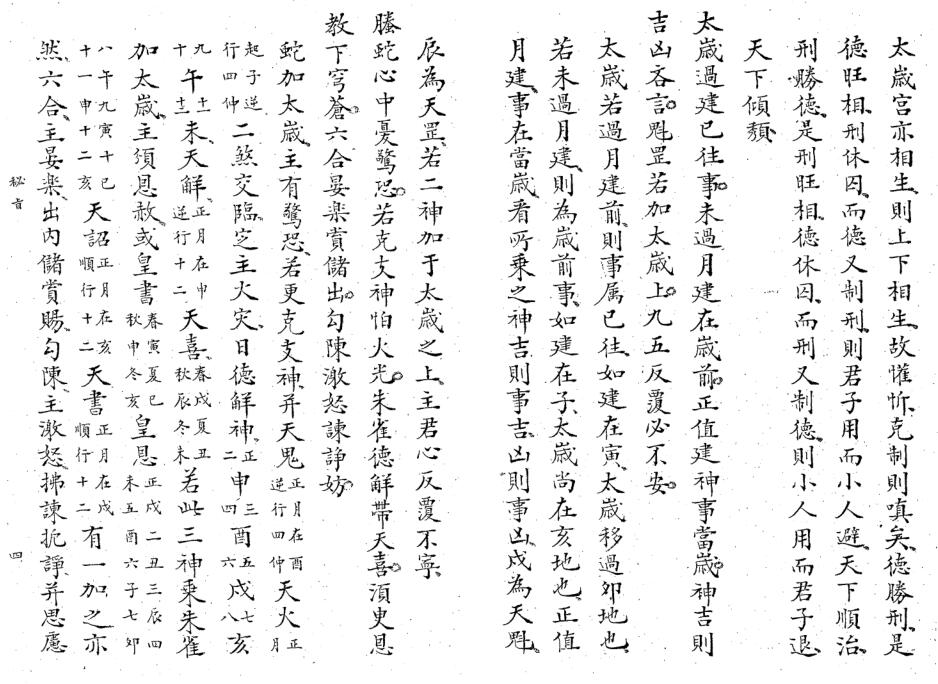 太歲宮亦相生則上下相生故懽忻克制則嗔矣德勝刑是
德旺相刑休囚而德又制刑則君子用而小人避天下順治
刑勝德是刑旺相德休囚而刑又制德則小人用而君子退
天下傾頽
太歲過建已往事未過月建在歲前正值建神事當歲神吉則
吉凶吝言魁罡若加太歲上九五反覆必不安
太歲若過月建前則事属已往如建在寅太歲移過卯地也
若未過月建則為歲前事如建在子太歲尚在亥地也正值
月建事在當歲看所乘之神吉則事吉凶則事凶戌為天魁
辰為天罡若二神加于太歲之上主君心反覆不寧
螣蛇心中憂驚恐若克支神怕火光朱雀德解帶天喜須更恩
教下穹蒼六合晏樂賞儲出勾陳激怒諫諍妨
蛇加太歲主有驚恐若更克支神并天鬼正月在酉逆行四仲天火正月
起子逆行四仲二煞交臨定主火灾日德解神正二申三四酉五六戌七亥
九十午十一十二未天解正月在申逆行十二天喜春戌夏丑秋辰冬未若此三神乘朱雀
加太歲主須恩赦或皇書春寅夏巳秋申冬亥皇恩正戌二丑三辰四未五酉六子七卯
八午九寅十巳十一申十二亥天詔正月在亥順行十二天書正月在戌順行十二有一加之亦
然六合主晏樂出內儲賞賜勾陳主激怒拂諫扼諍并思慮
秘旨
四